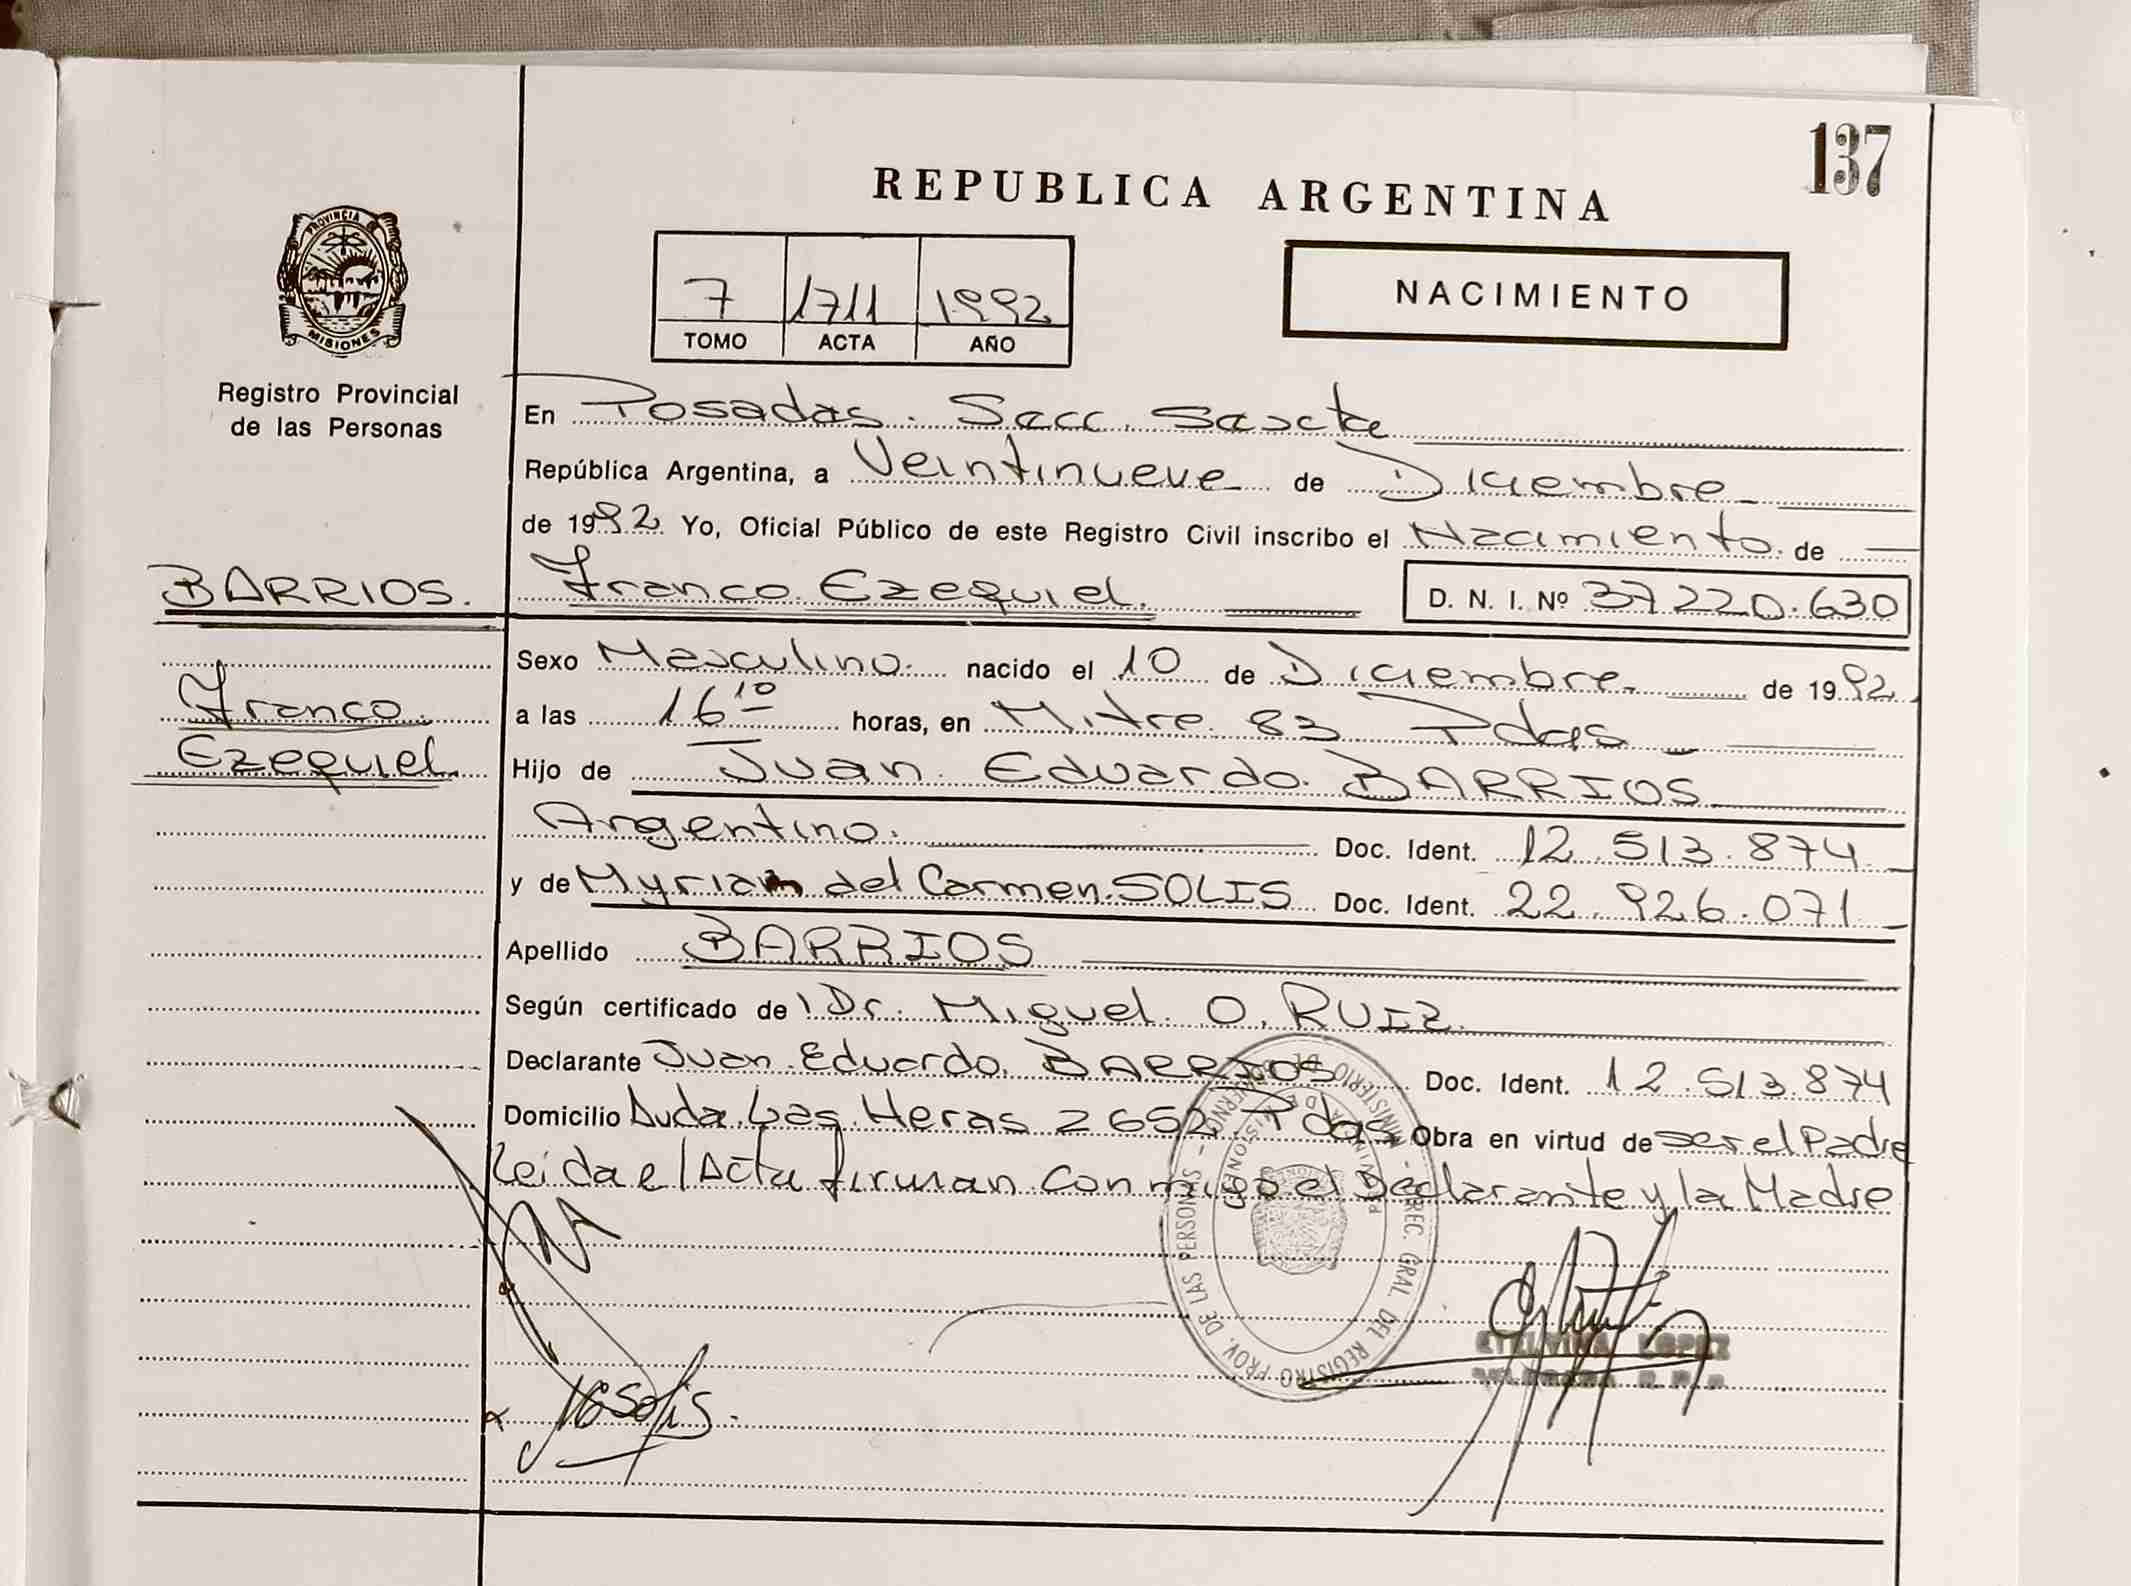 137
REPUBLICA ARGENTINA
PROVINCIA
MISIONES
Registro Provincial
de las Personas
7 1711 1992
TOMO ACTA AÑO
NACIMIENTO
En Posadas. Secc. Sexta
República Argentina, a Veintinueve de Diciembre
de 1992 Yo, Oficial Público de este Registro Civil inscribo el Nacimiento de
BARRIOS. Franco Ezequiel. D. N. I. Nº 37.220.630
Sexo Masculino. nacido el 10 de Diciembre de 1992
Franco
Ezequiel
a las 16 10 horas, en Mitre 83 Pdas
Hijo de Juan Eduardo BARRIOS
Argentino. Doc. Ident. 12.513.874
y de Myriam del Carmen SOLIS Doc. Ident. 22.926.071
Apellido BARRIOS
Según certificado de l Dr. Miguel O. RUIZ
Declarante Juan Eduardo BARRIOS Doc. Ident. 12.513.874
Domicilio Avda. Las Heras 2652 Pdas Obra en virtud de ser el Padre
Leida el Acta firman conmigo el Declarante y la Madre
MINISTERIO DE GOBIERNO - DIREC. GRAL. DEL REGISTRO PROV. DE LAS PERSONAS -
PROVINCIA DE MISIONES
Solis.
ETELVINA LOPEZ